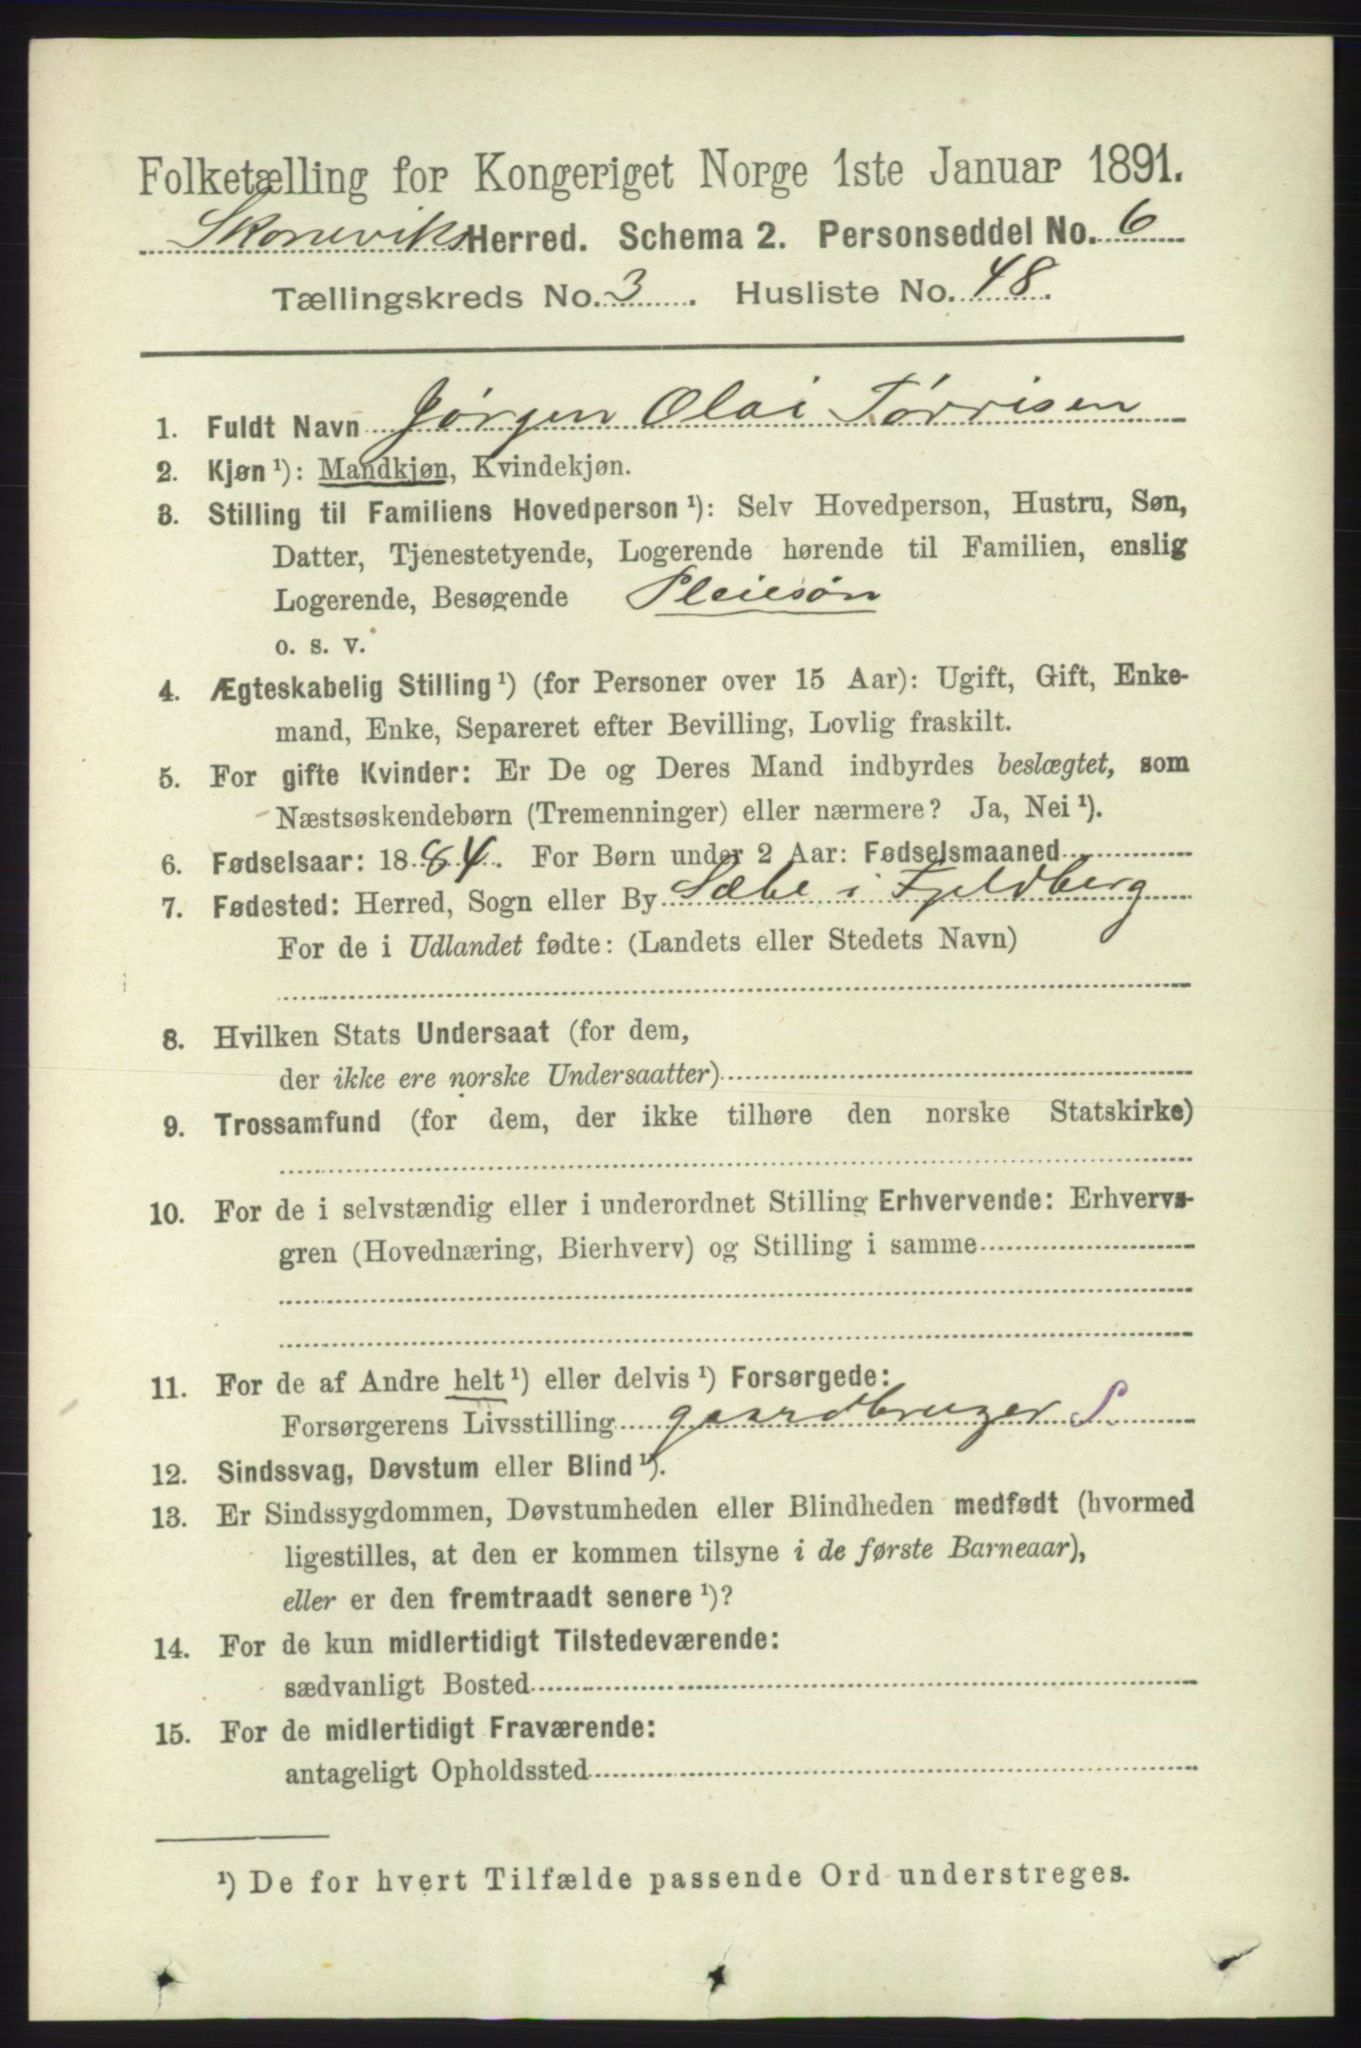 Folketælling for Kongeriget Norge 1ste Januar 1891.
Skoneviks Herred. Schema 2. Personseddel No. 6
Tællingskreds No. 3. Husliste No. 48.
1. Fuldt Navn Jørgen Olai Tørrisen
2. Kjøn ¹): Mandkjøn, Kvindekjøn.
3. Stilling til Familiens Hovedperson ¹): Selv Hovedperson, Hustru, Søn,
Datter, Tjenestetyende, Logerende hørende til Familien, enslig
Logerende, Besøgende Pleiesøn
o. s. v.
4. Ægteskabelig Stilling ¹) (for Personer over 15 Aar): Ugift, Gift, Enke-
mand, Enke, Separeret efter Bevilling, Lovlig fraskilt.
5. For gifte Kvinder: Er De og Deres Mand indbyrdes beslægtet, som
Næstsøskendebørn (Tremenninger) eller nærmere? Ja, Nei ¹).
6. Fødselsaar: 1884. For Børn under 2 Aar: Fødselsmaaned
7. Fødested: Herred, Sogn eller By Sæbe i Fjeldberg
For de i Udlandet fødte: (Landets eller Stedets Navn)
8. Hvilken Stats Undersaat (for dem,
der ikke ere norske Undersaatter)
9. Trossamfund (for dem, der ikke tilhøre den norske Statskirke)
10. For de i selvstændig eller i underordnet Stilling Erhvervende: Erhvervs-
gren (Hovednæring, Bierhverv) og Stilling i samme
11. For de af Andre helt ¹) eller delvis ¹) Forsørgede:
Forsørgerens Livsstilling gaardbruger S.
12. Sindssvag, Døvstum eller Blind ¹).
13. Er Sindssygdommen, Døvstumheden eller Blindheden medfødt (hvormed
ligestilles, at den er kommen tilsyne i de første Barneaar),
eller er den fremtraadt senere ¹)?
14. For de kun midlertidigt Tilstedeværende:
sædvanligt Bosted
15. For de midlertidigt Fraværende:
antageligt Opholdssted
¹) De for hvert Tilfælde passende Ord understreges.